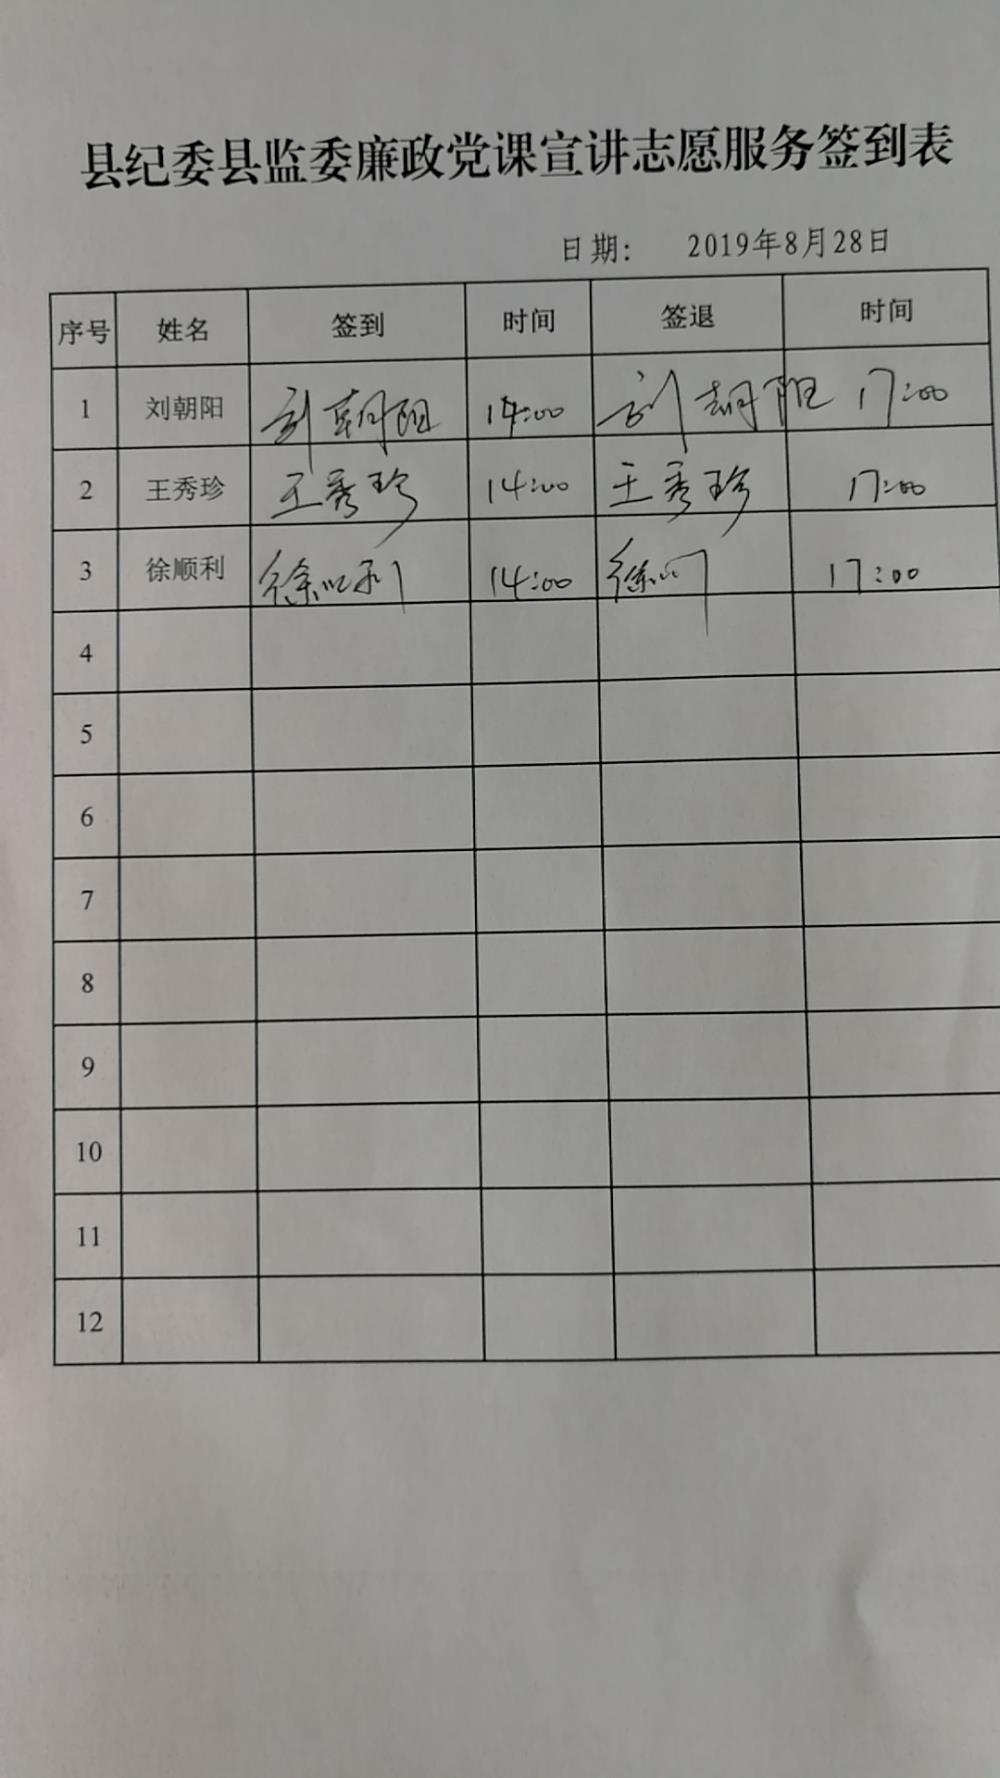 县纪委县监委廉政党课宣讲志愿服务签到表
日期: 2019年8月28日
序号 姓名 签到 时间 签退 时间
1 刘朝阳 刘朝阳 14:00 刘朝阳 17:00
2 王秀珍 王秀珍 14:00 王秀珍 17:00
3 徐顺利 徐顺利 14:00 徐顺利 17:00
4
5
6
7
8
9
10
11
12